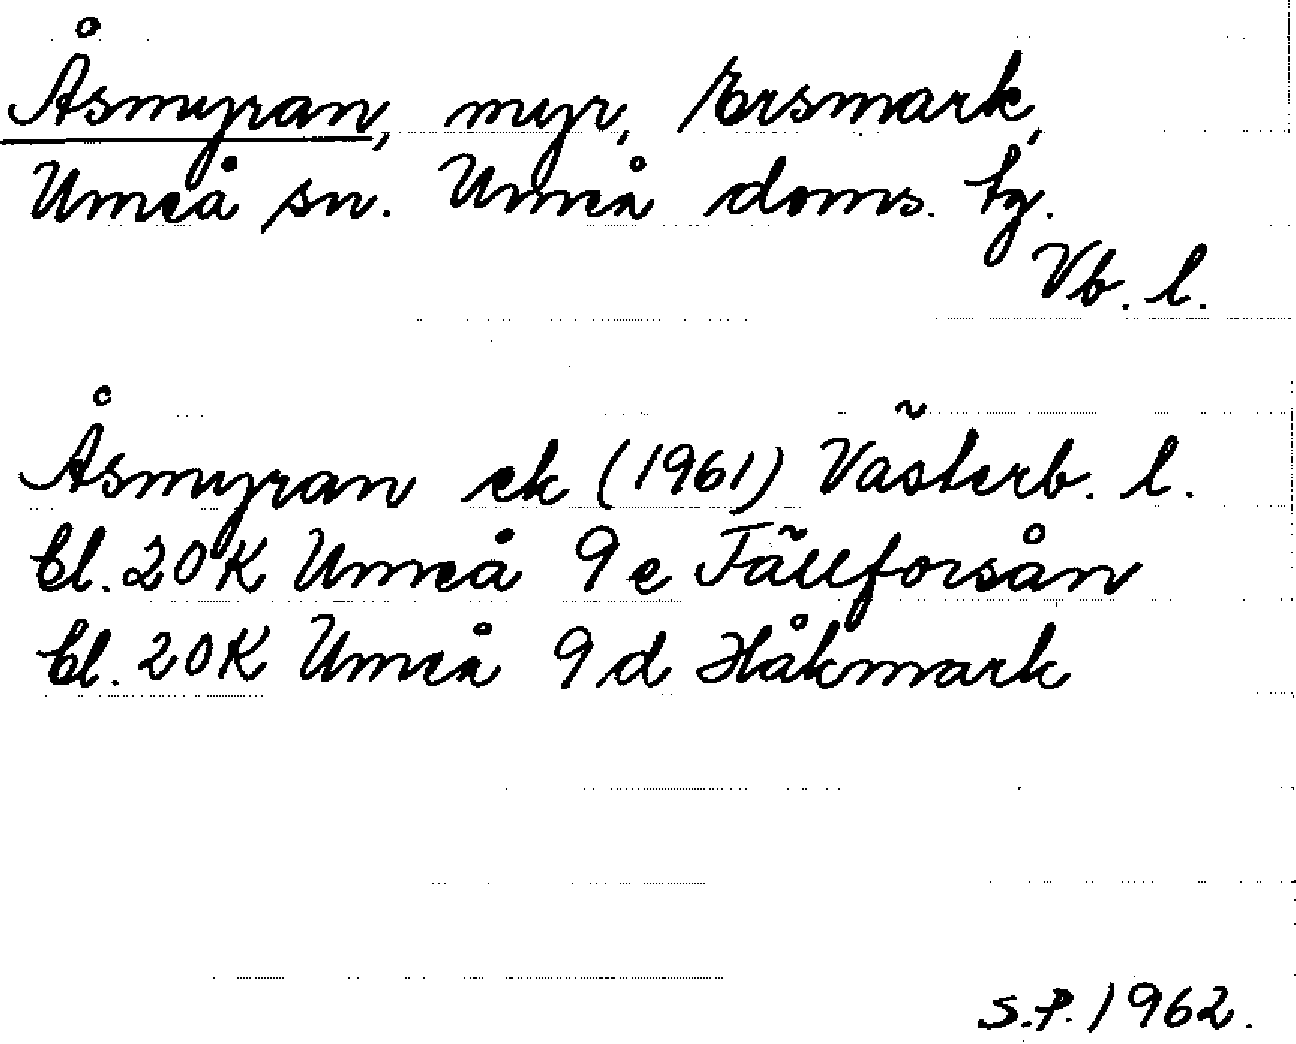 Åsmyran, myr, Ersmark,
Umeå sn. Umeå doms. tg.
Vb. l.
Åsmyran ek (1961) Västerb. l.
bl. 20K Umeå 9e Tällforsån
bl. 20K Umeå 9d Håkmark
S.P. 1962.